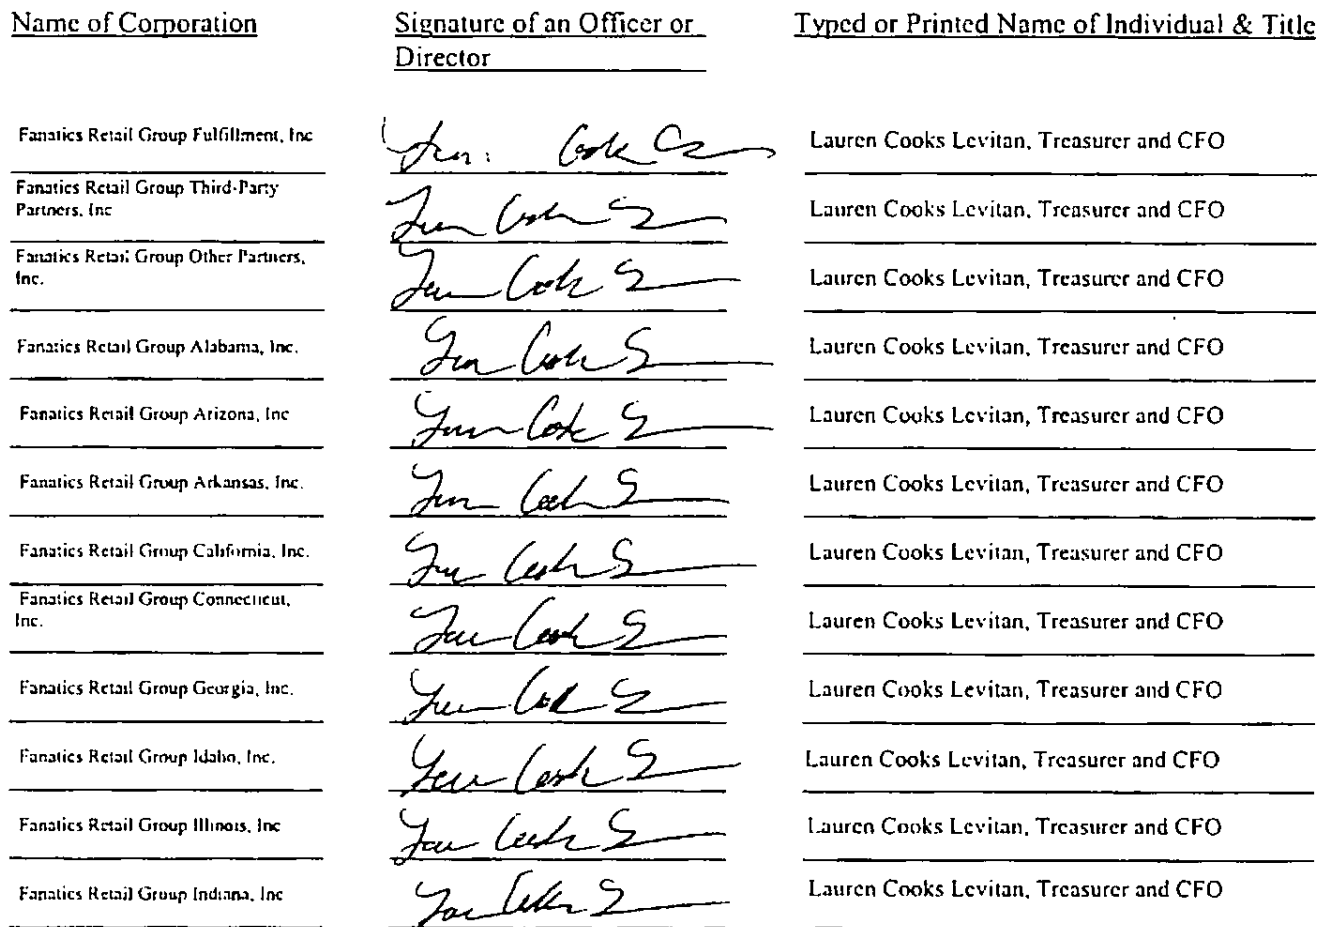 Name of Corporation
Signature of an Officer or
Director
Typed or Printed Name of Individual & Title
Fanatics Retail Group Fulfillment, Inc
Lauren Cooks Levitan, Treasurer and CFO
Fanatics Retail Group Third-Party
Partners, Inc
Lauren Cooks Levitan, Treasurer and CFO
Fanatics Retail Group Other Partners,
Inc.
Lauren Cooks Levitan, Treasurer and CFO
Fanatics Retail Group Alabama, Inc.
Lauren Cooks Levitan, Treasurer and CFO
Fanatics Retail Group Arizona, Inc
Lauren Cooks Levitan, Treasurer and CFO
Fanatics Retail Group Arkansas, Inc.
Lauren Cooks Levitan, Treasurer and CFO
Fanatics Retail Group California, Inc.
Lauren Cooks Levitan, Treasurer and CFO
Fanatics Retail Group Connecticut,
Inc.
Lauren Cooks Levitan, Treasurer and CFO
Fanatics Retail Group Georgia, Inc.
Lauren Cooks Levitan, Treasurer and CFO
Fanatics Retail Group Idaho, Inc.
Lauren Cooks Levitan, Treasurer and CFO
Fanatics Retail Group Illinois, Inc
Lauren Cooks Levitan, Treasurer and CFO
Fanatics Retail Group Indiana, Inc
Lauren Cooks Levitan, Treasurer and CFO